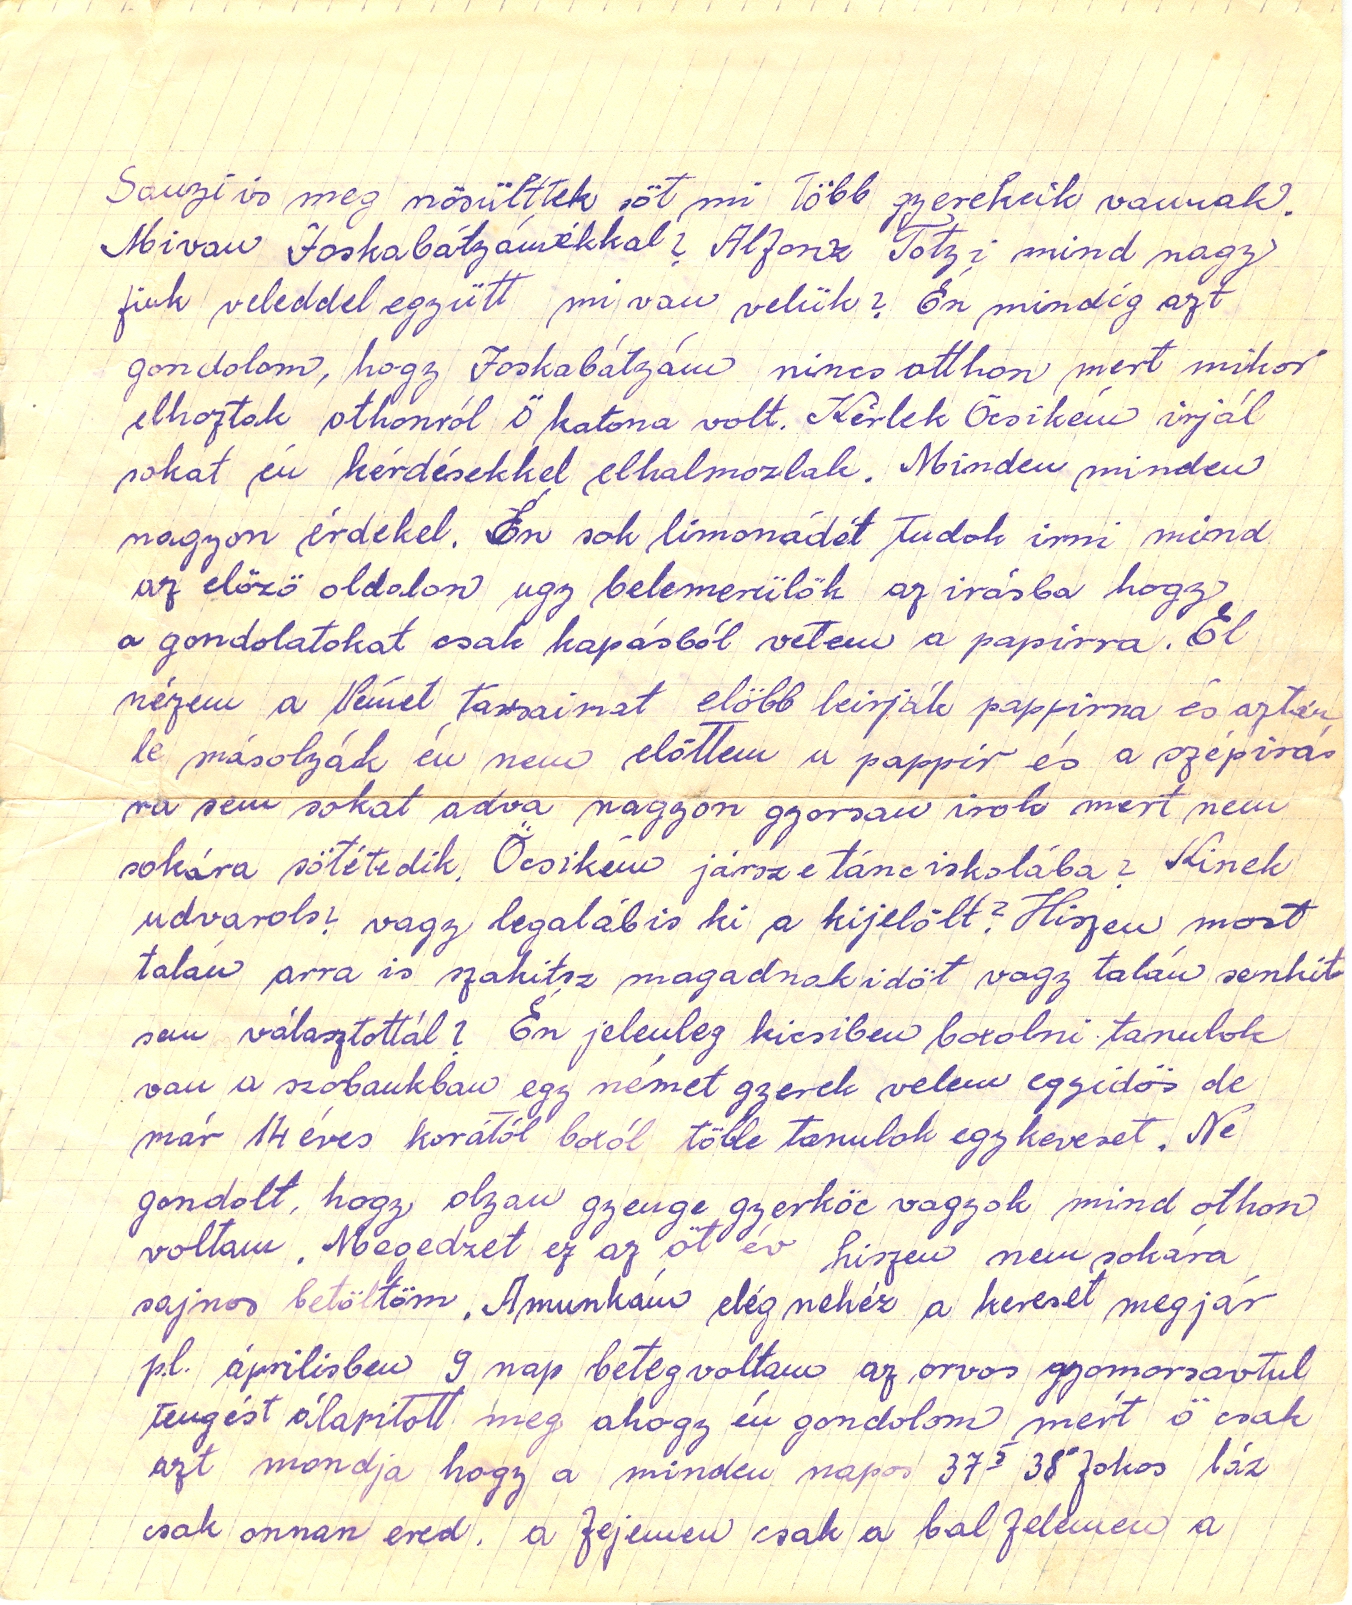 Sauzi is meg nösülttek söt mi több gyerekeik vannak.
Mivan Joskabátyámékkal? Alfonz Totzi mind nagy
fiuk veleddel együtt mi van velük? Én mindég azt
gondolom, hogy Joskabátyám nincs otthon mert mikor
elhoztak othonról ö katona volt. Kérlek Öcsikém irjál
sokat én kérdésekkel elhalmozlak. Minden minden
nagyon érdekel. Én sok limonádét tudok irni mind
az elözö oldalon ugy belemerülök az irásba hogy
a gondolatokat csak kapásból vetem a papirra. El
nézem a Német társaimat elöbb leirják pappirra és aztán
le másolyák én nem elöttem a pappir és a szépirás
ra sem sokat adva nagyon gyorsan irok mert nem
sokára sötétedik. Öcsikém jársz e tánciskolába? Kinek
udvarols? vagy legalábis ki a kijelölt? Hiszen most
talán arra is szakitsz magadnak idöt vagy talán senkit
sem választottál? Én jelenleg kicsiben boxolni tanulok
van a szobankban egy német gyerek velem egyidös de
már 14 éves korától boxól tölle tanulok egykeveset. Ne
gondolt, hogy olyan gyenge gyerköc vagyok mind othon
voltam. Megedzet ez az öt év hiszen nemsokára
sajnos betöltöm. A munkám elég nehéz a kereset megjár
pl. áprilisben 9 nap beteg voltam az orvos gyomorsavtul
tengést álapitott meg ahogy én gondolom mert ö csak
azt mondja hogy a minden napos 37⁵ 38 fokos láz
csak onnan ered. a fejemen csak a bal felemen a